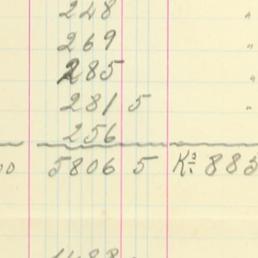 248 "
269 "
285 "
281 5 "
256
5806 5 K⁰: 883